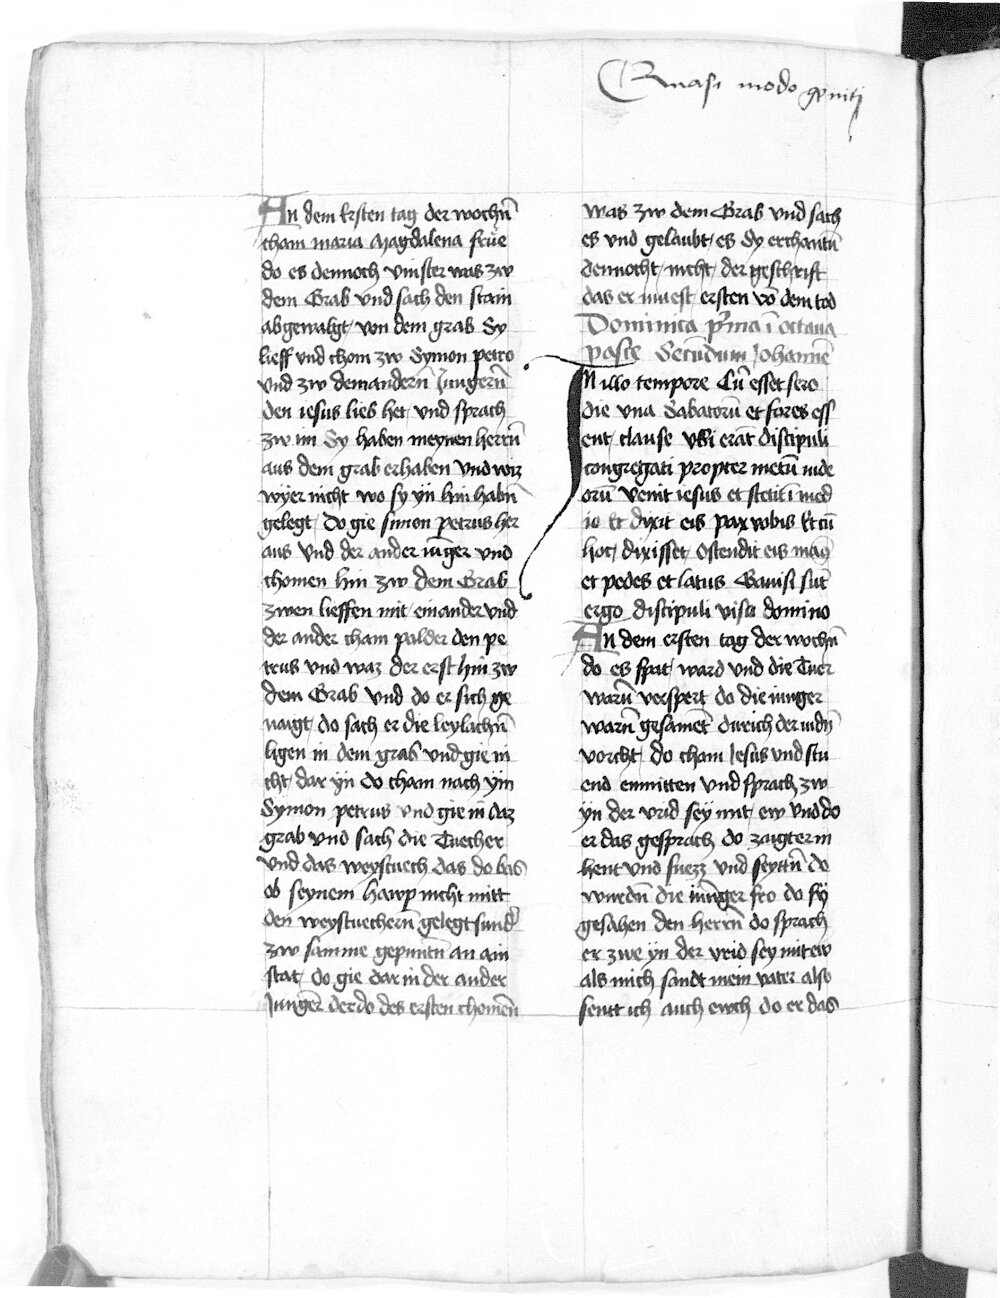 Quasi modo geniti
An dem ersten tag der wochn̄
cham maria Magdalena frue
do es dennoch vinster was zw
dem Grab vnd sach den stain
abgewalgt von dem grab Sy
lieff vnd chom zw Symon petro
vnd zw demandern̄ Jungern̄
den iesus lieb het vnd sprach
zw im Sy haben meynen herrn̄
aus dem grab erhaben vnd wir
wyer nicht wo sy yn hin habn̄
gelegt do gie simon petrus her
aus vnd der ander iūger vnd
chomen hin zw dem Grab
zwen lieffen mit einander vnd
der ander cham palder den pe
trus vnd waz der erst hin zw
dem Grab vnd do er sich ge
naigt do sach er die leylachn̄
ligen in dem grab vnd gie ni
cht dar yn do cham nach ym
Symon petrus vnd gie in daz
grab vnd sach die Tuecher
vnd das weystuech das do bas
ob seynem hawp nicht mitt
den weystuechern̄ gelegt sund
zw samme gepuntn̄ an ain
stat do gie dar in der ander
Junger der do des ersten chomen̄
was zw dem Grab vnd sach
es vnd gelaubt es Sy erchantn̄
dennocht nicht der geschrift
das er muest ersten vō dem tod
Dominica p̄ma ī octaua
pasce Secūdum Johannē
IN illo tempore Cū esset sero
die vna Sabatorū et fores ess
ent clause vbi erāt discipuli
congregati propter metū iude
orū venit iesus et stetit ī med
io Et dixit eis pax vobis Et cū
hoc dixisset Ostendit eis man̄
et pedes et latus Gauisi sūt
ergo discipuli viso domino
An dem ersten tag der wochn̄
do es spat ward vnd die Tuer
warn̄ verspert do die iunger
warn̄ gesament̄ durich der iudn̄
vorcht do cham Jesus vnd stu
end enmitten vnd sprach zw
yn der vrid sey mit ew vnd do
er das gesprach do zaigter in
hent vnd fuezz vnd seyttn̄ do
wurdn̄ die iunger fro do sy
gesahen den herrn̄ do sprach
er zwe yn der vrid sey mit ew
als mich sandt mein vater also
sentt ich auch ewch do er das